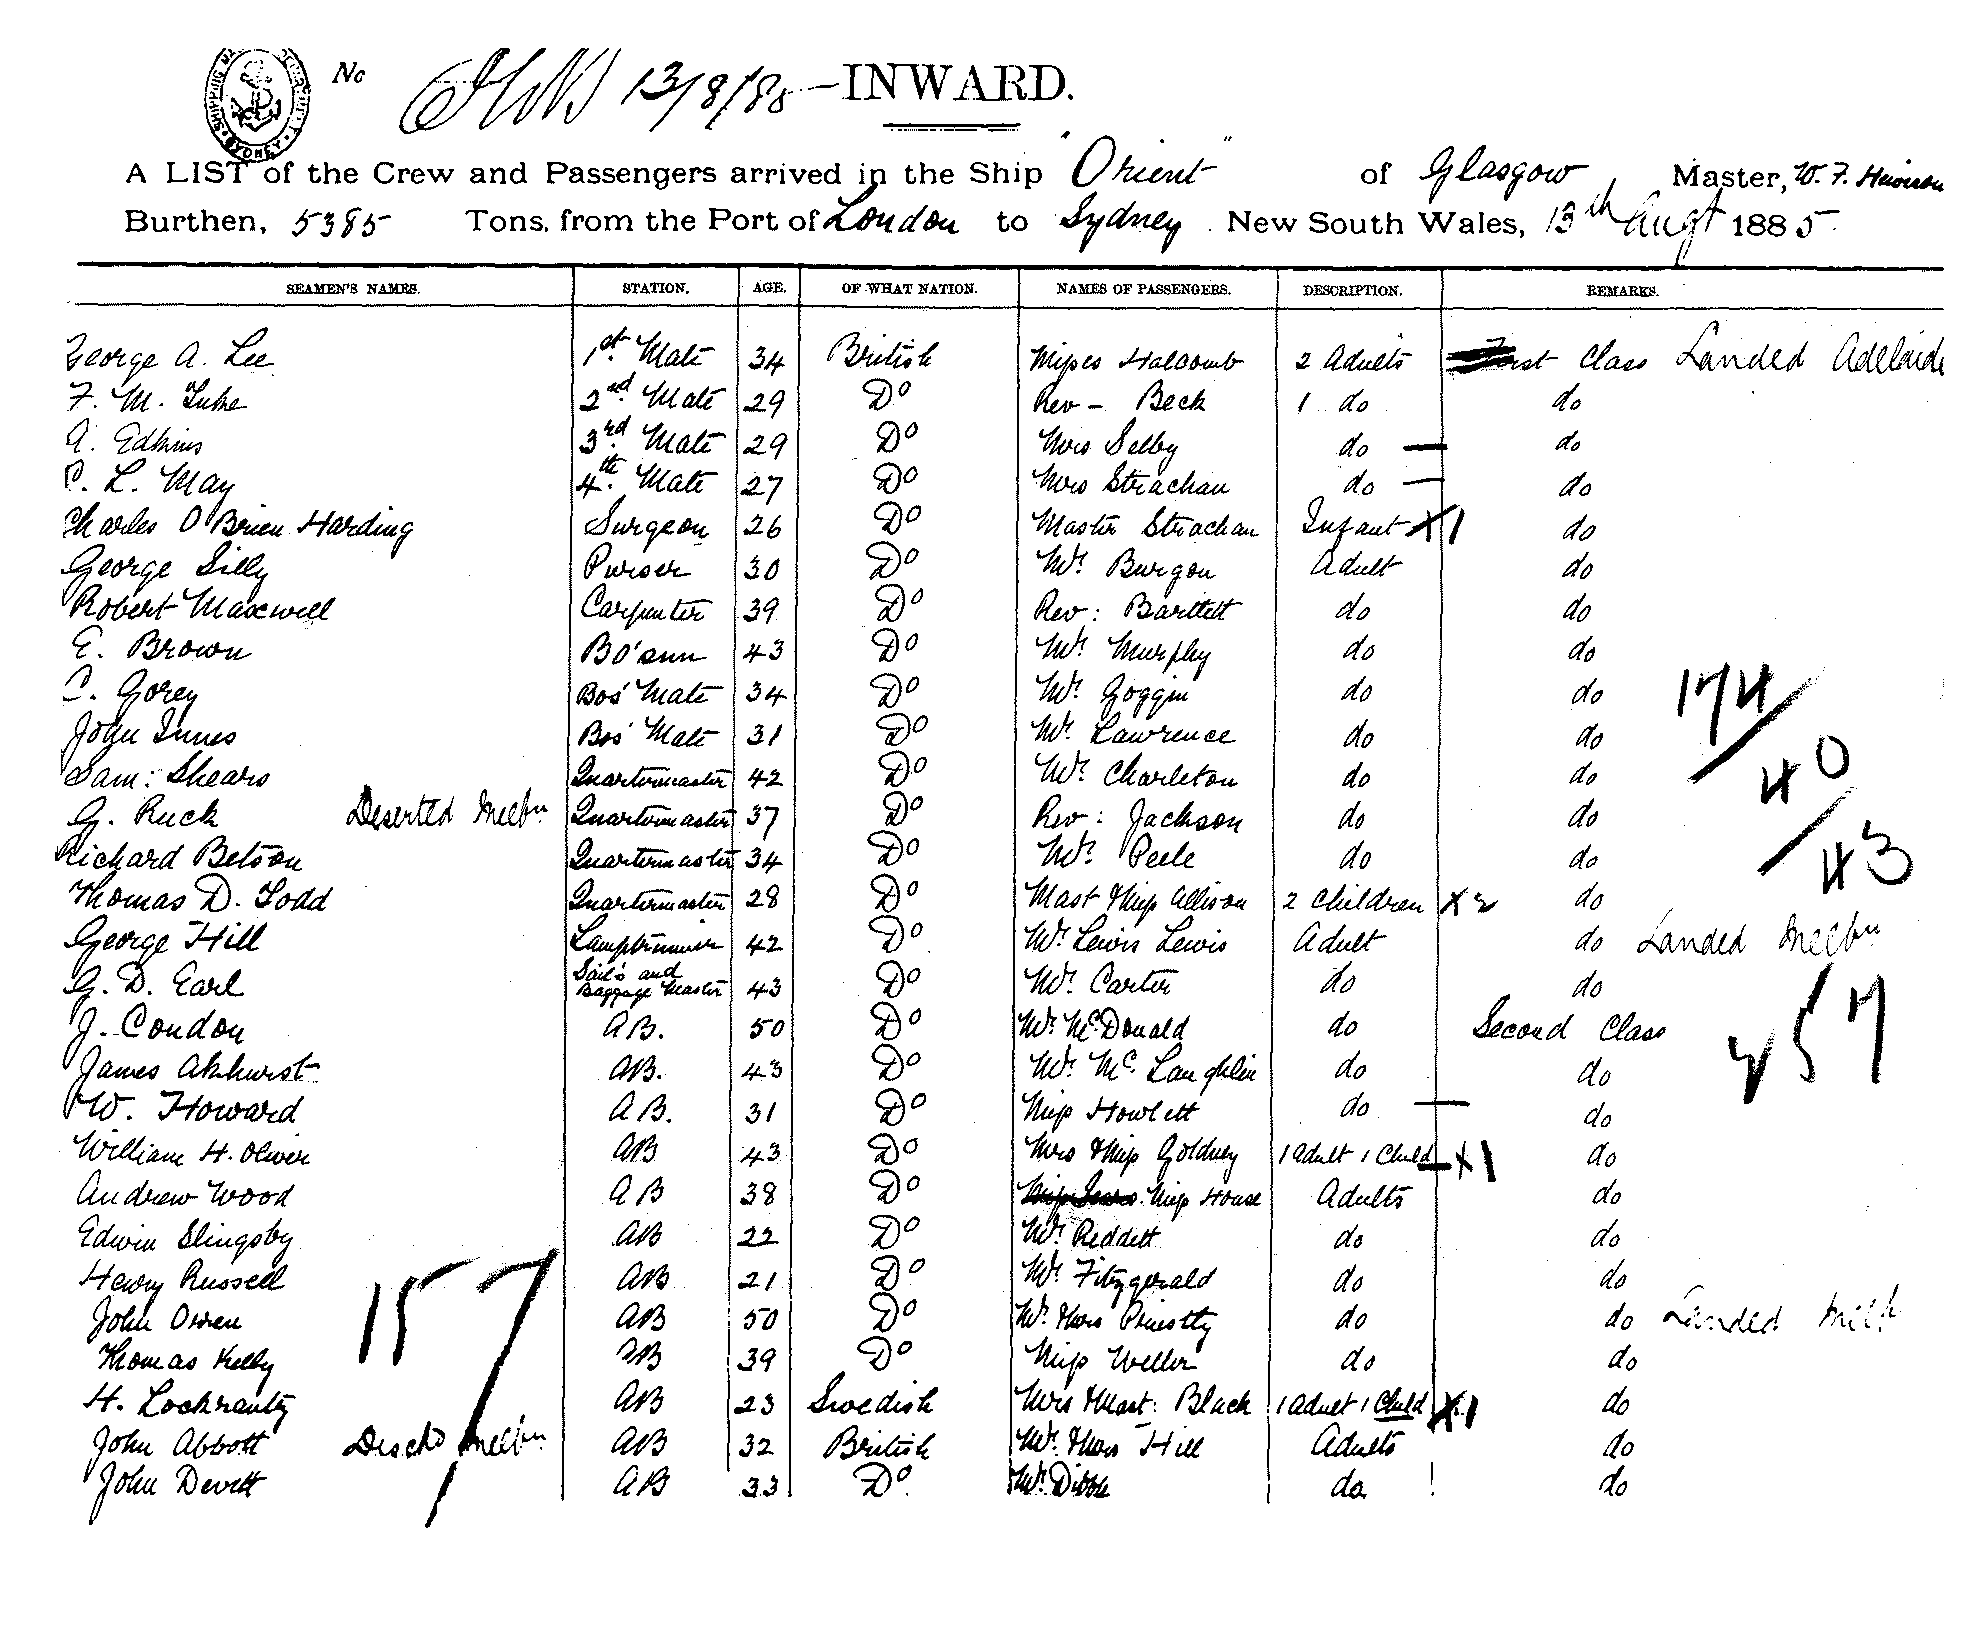 No 13/8/85 INWARD.
A LIST of the Crew and Passengers arrived in the Ship "Orient" of Glasgow Master, W. F.
Burthen, 5385 Tons, from the Port of London to Sydney New South Wales, 13th Augt 1885.
SEAMEN'S NAMES. STATION. AGE. OF WHAT NATION. NAMES OF PASSENGERS. DESCRIPTION. REMARKS.
George A. Lee 1st Mate 34 British Misses Halcomb 2 Adults First Class Landed Adelaide
F. M. Tuke 2nd Mate 29 Do Rev - Beck 1 do do
A. Edkins 3rd Mate 29 Do Mrs Selby do — do
C. L. May 4th Mate 27 Do Mrs Strachan do — do
Charles O'Brien Harding Surgeon 26 Do Master Strachan Infant X1 do
George Silly Purser 30 Do Mr Burgon Adult do
Robert Maxwell Carpenter 39 Do Rev: Bartlett do do
E. Brown Bo'sun 43 Do Mr Murphy do do
C. Gorey Bos' Mate 34 Do Mr Goggin do do 174/
John Innes Bos' Mate 31 Do Mr Lawrence do do
Sam: Shears Quartermaster 42 Do Mr Charleton do do 40/
G. Ruck Deserted Melbn Quartermaster 37 Do Rev: Jackson do do
Richard Betson Quartermaster 34 Do Mr Peele do do 43
Thomas D. Todd Quartermaster 28 Do Mast & Miss Allison 2 Children X2 do
George Hill Lamptrimmer 42 Do Mr Lewis Lewis Adult do Landed Melbn
G. D. Earl Sail's and Baggage Master 43 Do Mr Carter do do
J. Condon AB. 50 Do Mr McDonald do Second Class 257
James Akhurst AB. 43 Do Mr McLaughlin do do
W. Howard AB. 31 Do Miss Howlett do — do
William H. Oliver AB 43 Do Mrs & Miss Goldney 1 Adult 1 Child X1 do
Andrew Wood AB 38 Do Miss House Adults do
Edwin Slingsby AB 22 Do Mr Reddett do do
Henry Russell AB 21 Do Mr Fitzgerald do do
157
John Owen AB 50 Do Mr & Mrs Priestly do do Landed Melb
Thomas Kelly AB 39 Do Miss Weller do do
H. Lockrantz AB 23 Swedish Mrs & Mast: Black 1 Adult 1 Child X1 do
John Abbott Dischd Melbn AB 32 British Mr & Mrs Hill Adults do
John Devett AB 33 Do Mr Dibble do do